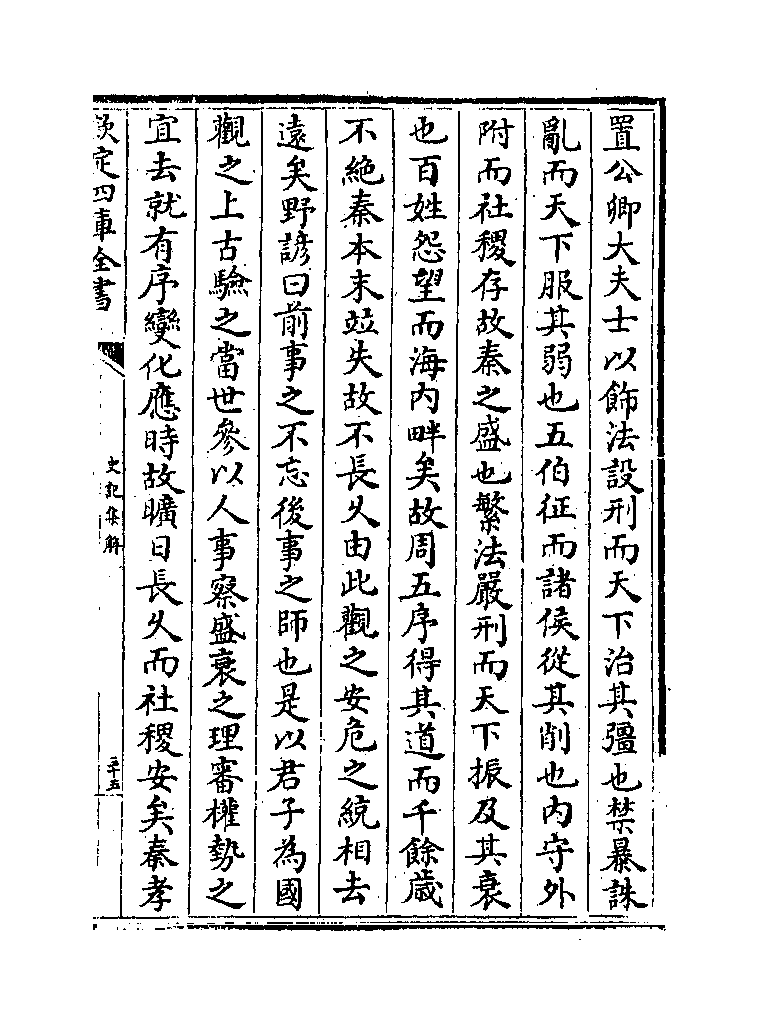 置公卿大夫士以飾法設刑而天下治其彊也禁暴誅
亂而天下服其弱也五伯征而諸侯從其削也内守外
附而社稷存故秦之盛也繁法嚴刑而天下振及其衰
也百姓怨望而海内畔矣故周五序得其道而千餘歲
不絶秦本末竝失故不長久由此觀之安危之統相去
遠矣野諺曰前事之不忘後事之師也是以君子為國
觀之上古驗之當世參以人事察盛衰之理審權勢之
宜去就有序變化應時故曠日長久而社稷安矣秦孝
欽定四庫全書
史記集解
二十五